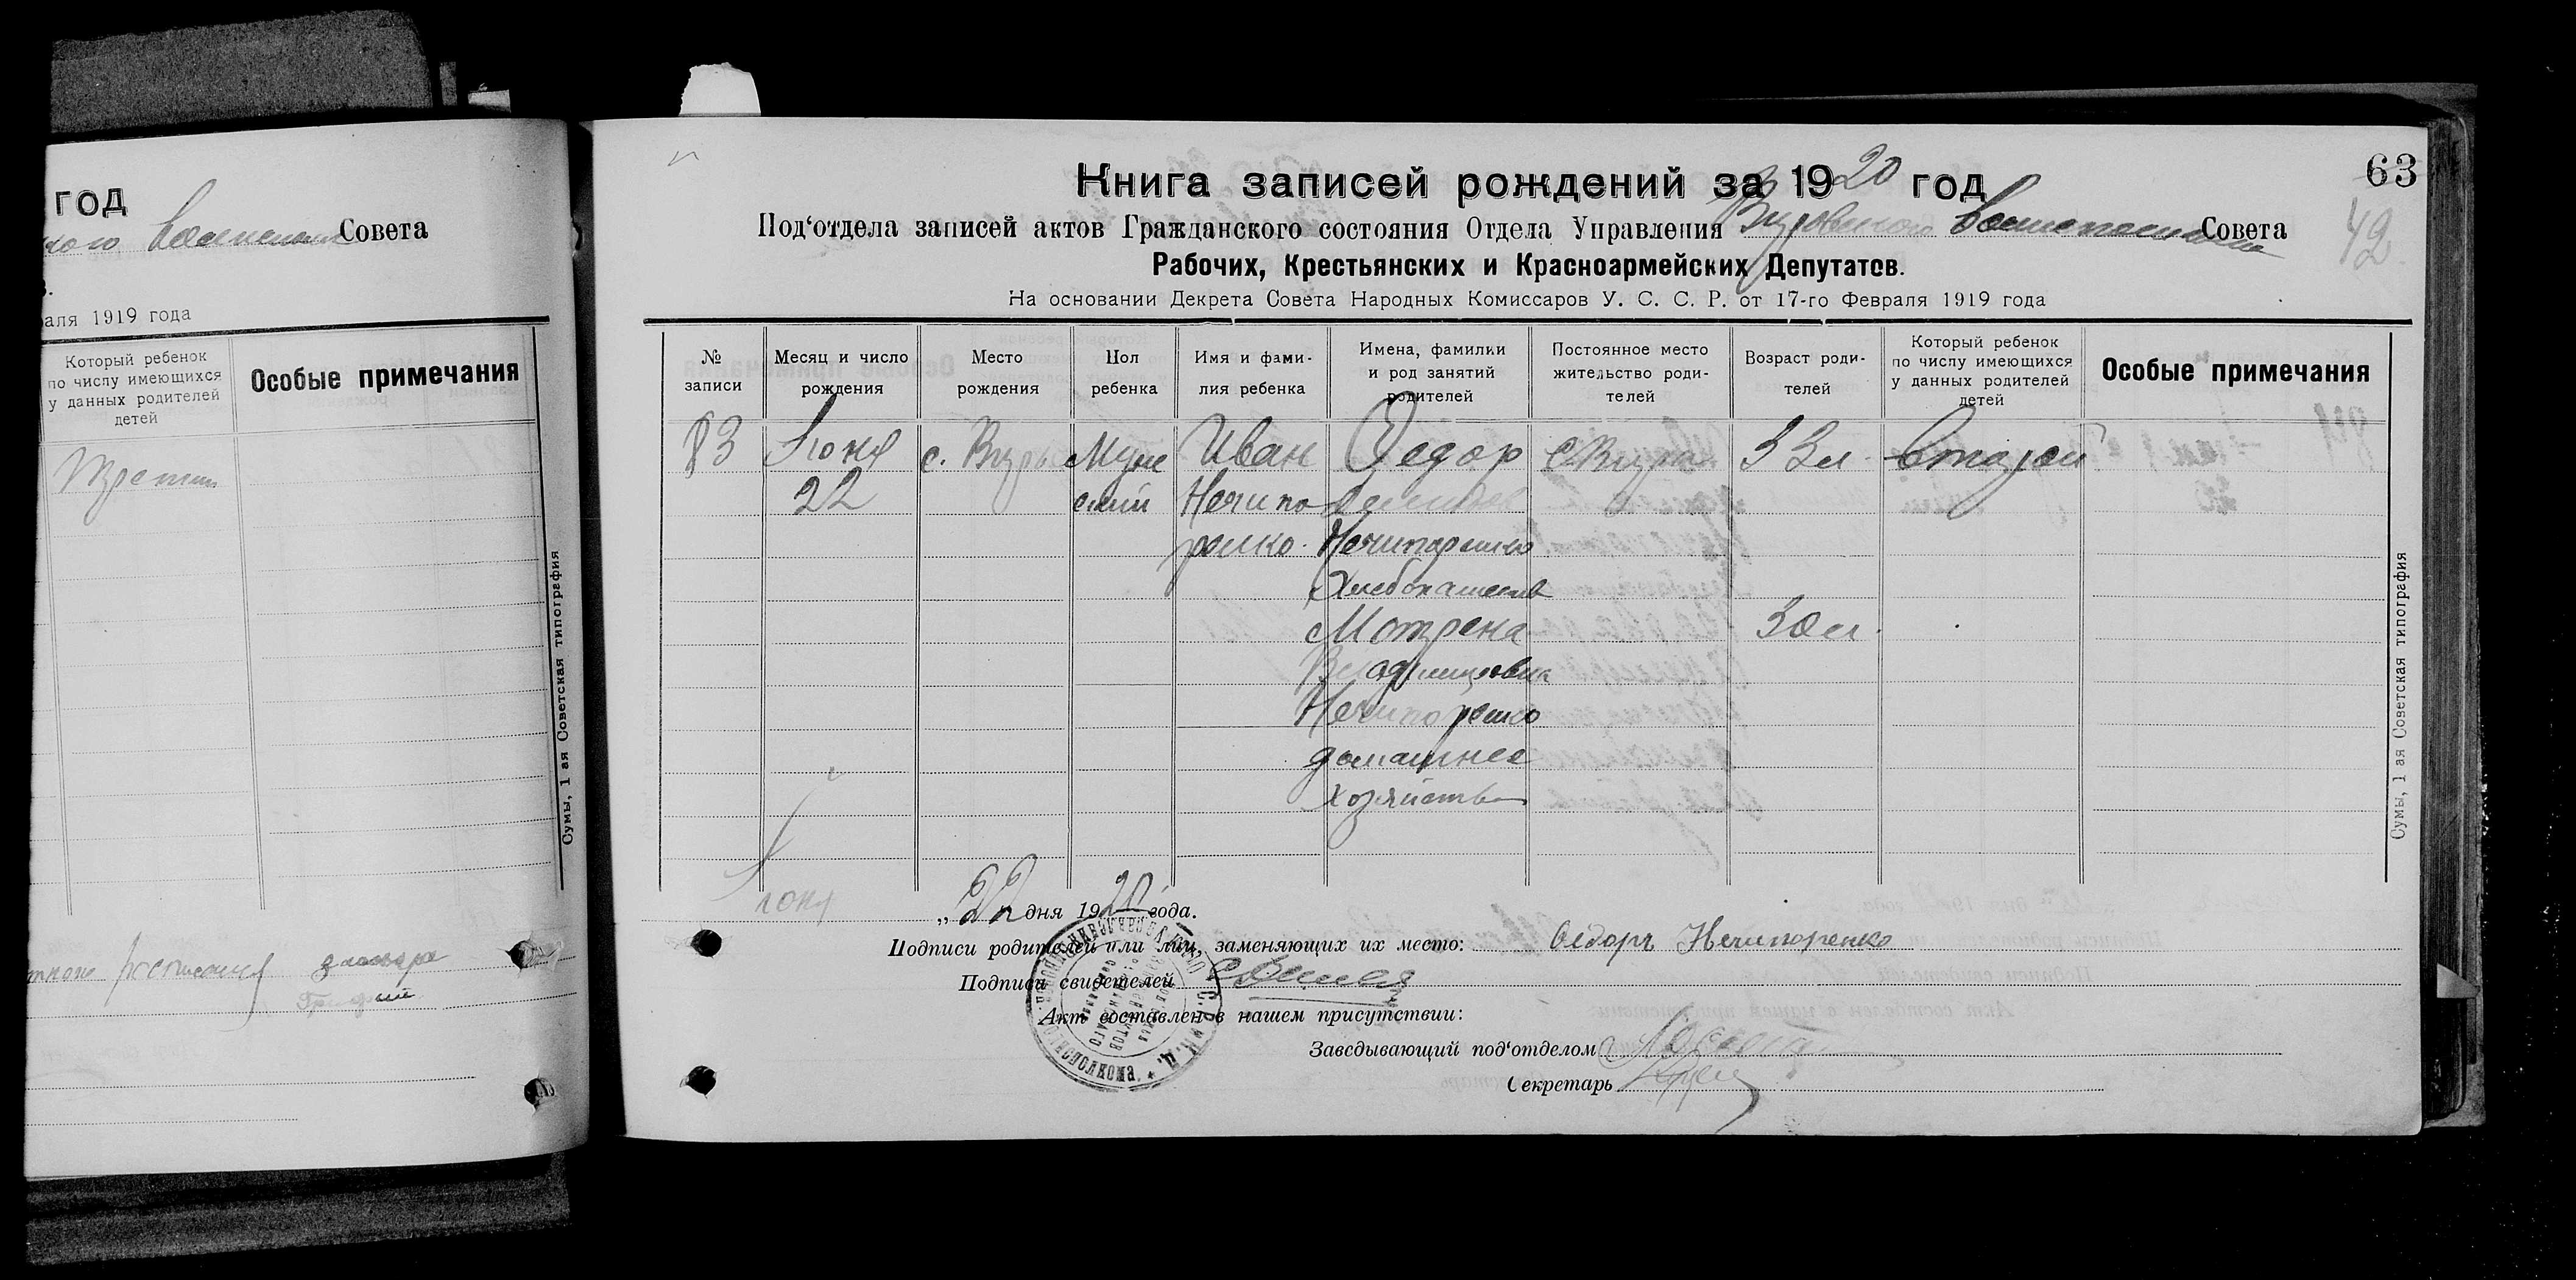 год
Совета
аля 1919 года
Который ребенок
по числу имеющихся
у данных родителей
детей
Особые примечания
Сумы, 1 ая Советская типография
63
42
Книга записей рождений за 1920 год
Под'отдела записей актов Гражданского состояния Отдела Управления Совета
Рабочих, Крестьянских и Красноармейских Депутатов.
На основании Декрета Совета Народных Комиссаров У. С. С. Р. от 17-го Февраля 1919 года
№ записи
Месяц и число рождения
Место рождения
Пол ребенка
Имя и фами-
лия ребенка
Имена, фамилии
и род занятий
родителей
Постоянное место
жительство роди-
телей
Возраст роди-
телей
Который ребенок
по числу имеющихся
у данных родителей
детей
Особые примечания
83
Июня
22
с. Виры
Муж
ский
Иван
Нечипо
ренко.
Федор
Нечипоренко
Хлебопашеств
Мотрена
Нечипоренко
домашнее
хозяйство
с. Вира
33 л.
30 л.
второй
Июня „22 дня 1920 года.
Подписи родителей или лиц, заменяющих их место: Федоръ Нечипоренко
Подписи свидетелей
Акт составлен в нашем присутствии:
Заведывающий под'отделом
Секретарь
Сумы, 1 ая Советская типография